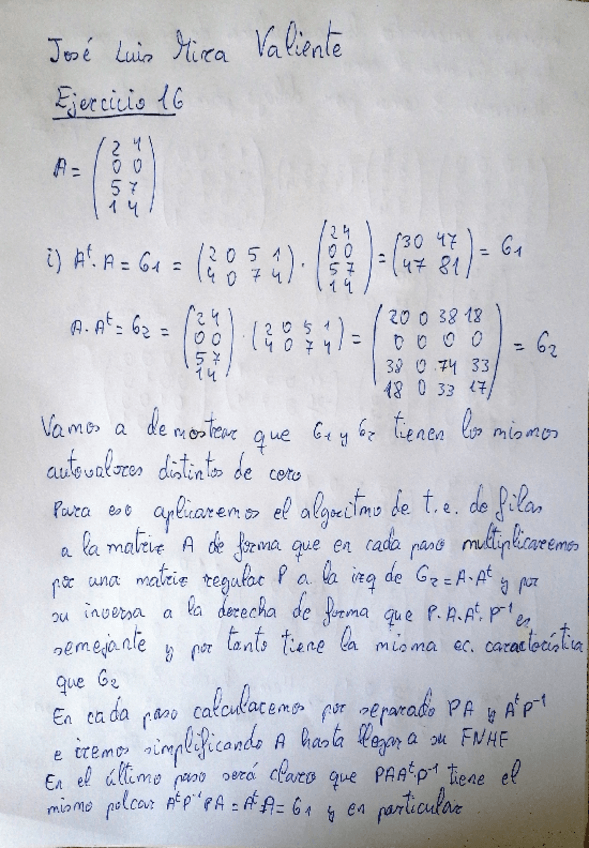 José Luis Mira Valiente
Ejercicio 16
A = (2 4
0 0
5 7
1 4)
i) Aᵗ·A = G1 = (2 0 5 1
4 0 7 4) · (2 4
0 0
5 7
1 4) = (30 47
47 81) = G1
A·Aᵗ = G2 = (2 4
0 0
5 7
1 4) · (2 0 5 1
4 0 7 4) = (20 0 38 18
0 0 0 0
38 0 74 33
18 0 33 17) = G2
Vamos a demostrar que G1 y G2 tienen los mismos
autovalores distintos de cero
Para eso aplicaremos el algoritmo de t.e. de filas
a la matriz A de forma que en cada paso multiplicaremos
por una matriz regular P a la izq de G2 = A·Aᵗ y por
su inversa a la derecha de forma que P·A·Aᵗ·P⁻¹ es
semejante y por tanto tiene la misma ec. característica
que G2
En cada paso calcularemos por separado PA y AᵗP⁻¹
e iremos simplificando A hasta llegar a su FNHF
En el último paso será claro que PAAᵗP⁻¹ tiene el
mismo polcar AᵗP⁻¹PA = AᵗA = G1 y en particular